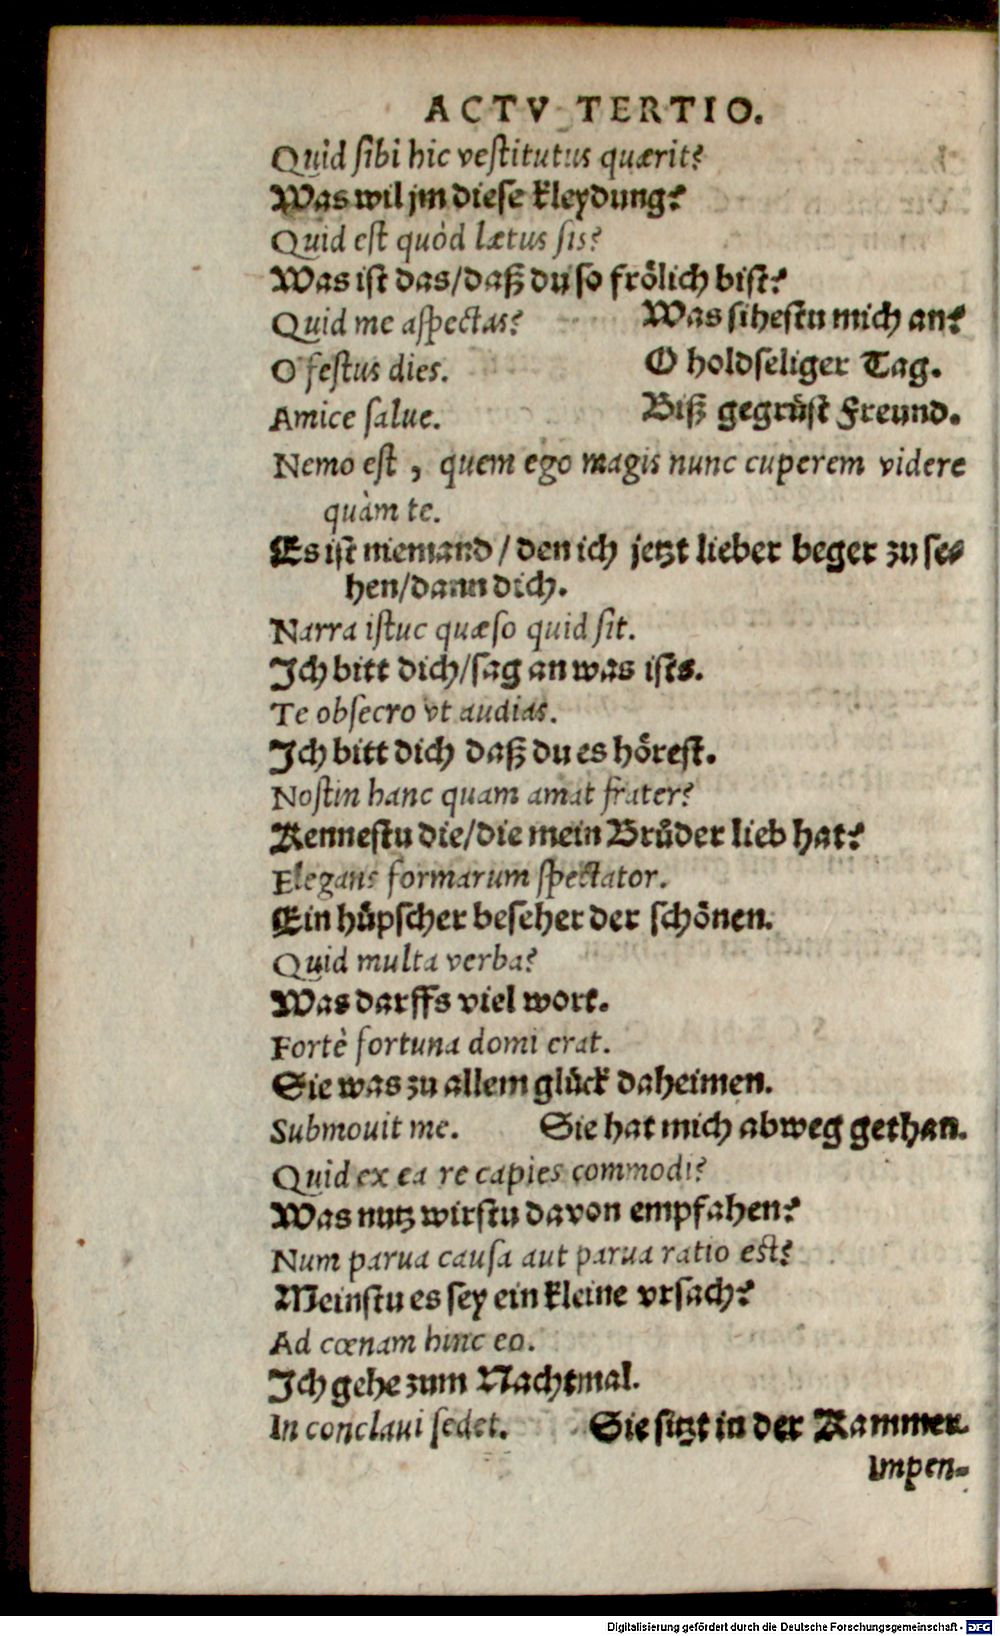 ACTV TERTIO.
Quid ſibi hic veſtitutus quærit?
Was wil jm dieſe kleydung?
Quid eſt quòd lætus ſis?
Was iſt das/daß du ſo frölich biſt?
Quid me aſpectas? Was siheſtu mich an?
O feſtus dies. O holdſeliger Tag.
Amice ſalue. Biß gegrüſt Freund.
Nemo eſt, quem ego magis nunc cuperem videre
quàm te.
Es iſt niemand / den ich jetzt lieber beger zu ſe-
hen/dann dich.
Narra iſtuc quæſo quid ſit.
Ich bitt dich/ſag an was iſts.
Te obſecro vt audias.
Ich bitt dich daß du es höreſt.
Noſtin hanc quam amat frater?
Kenneſtu die/die mein Brůder lieb hat?
Elegans formarum ſpectator.
Ein hüpſcher beſeher der ſchönen.
Quid multa verba?
Was darffs viel wort.
Fortè fortuna domi erat.
Sie was zu allem glück daheimen.
Submouit me. Sie hat mich abweg gethan.
Quid ex ea re capies commodi?
Was nutz wirſtu davon empfahen?
Num parua cauſa aut parua ratio est?
Meinſtu es ſey ein kleine vrſach?
Ad cœnam hinc eo.
Ich gehe zum Nachtmal.
In conclaui ſedet. Sie ſitzt in der Kammer.
Impen-
Digitalisierung gefördert durch die Deutsche Forschungsgemeinschaft - DFG